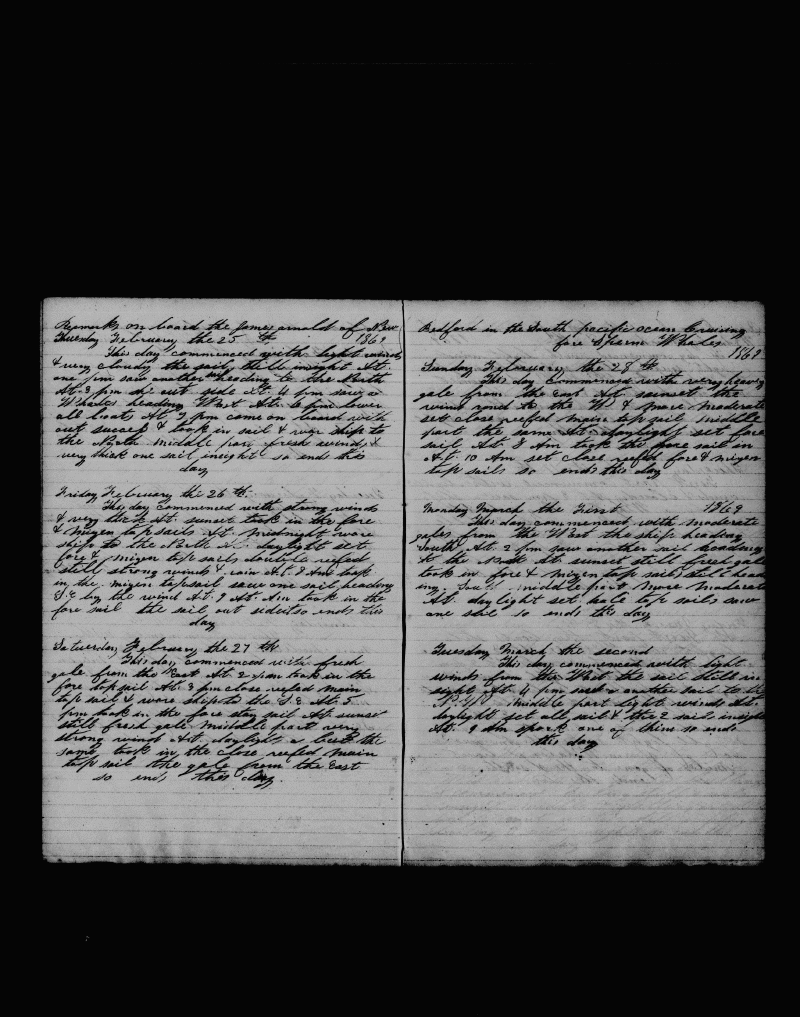 Remarks on board the James arnold of New
Thursday February the 25 th 1869
This day commenced with light winds
& very cloudy the sail still insight At.
one pm saw another heading to the North
At. 3 pm out side At. 4 pm saw a
Whales heading West At. 6 pm lower
all boats At. 7 pm come on board with
out success & took in sail & ship to
the North middle part fresh winds &
very thick one sail insight so ends this
day
Friday February the 26 th
This day commenced with strong winds
& very thick At. sunset took in the fore
& mizen topsails At. midnight wore
ship to the North At. daylight set
fore & mizen top sails double reefed
still strong winds & rain At. 8 Am took
in the mizen topsail saw one sail heading
S.E by the wind At. 9 At. Am took in the
fore sail the sail out side so ends this
day
Saturday February the 27 th
This day commenced with fresh
gale from the East At. 2 pm took in the
fore top sail At. 3 pm close reefed main
top sail & wore ship to the S.E At. 5
pm took in the fore stay sail At. sunset
still fresh gale middle part very
strong wind At. daylight a the
same took in the close reefed main
top sail the gale from the East
so ends this day.
Bedford in the South pacific ocean Cruising
fire Sparm Whales
1869
Sunday February the 28 th
This day commenced with very heavy
gale from the East At. sunset the
wind round to the W & more moderate
set close reefed main top sail middle
part the same At. daylight set fore
sail At. 8 Am took the fore sail in
At. 10 Am set close reefed fore & mizen
top sails so ends this day
Monday March the First 1869
This day commenced with moderate
gales from the West the ship heading
South At. 2 pm saw another sail heading
to the At sunset still fresh gale
took in fore & mizen top sails still head
ing middle part more moderate
At. day light set top sails saw
one sail so ends this day
Tuesday March the second
This day commenced with light
winds from the West the sail still in
sight At. 4 pm saw another sail to the
middle part light winds At.
daylight set all sail & the 2 sail insight
At. 9 Am spork one of thim so ends
this day